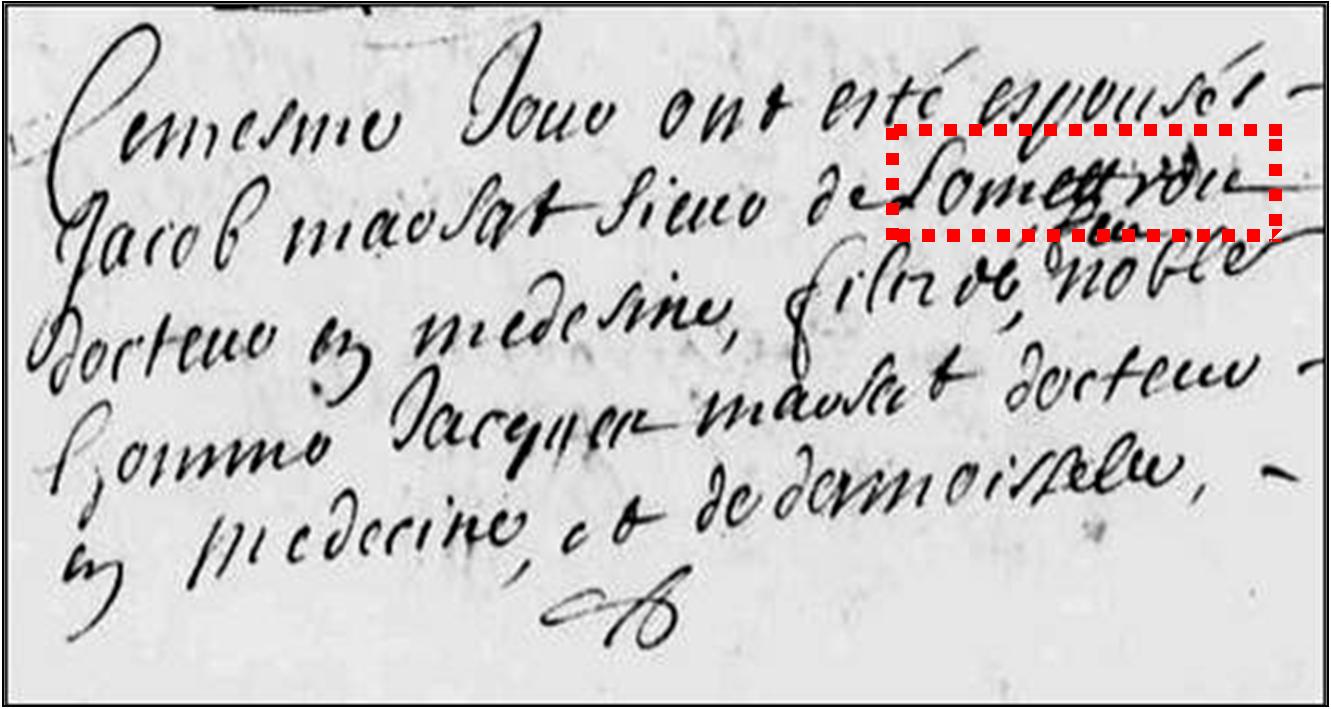 Cemesme Jour ont esté espousés -
Jacob maorsat sieur de
docteur en medesine, filz de, feu noble
homme Jacques maorsat docteur -
en medecine, et de demoiselle, -